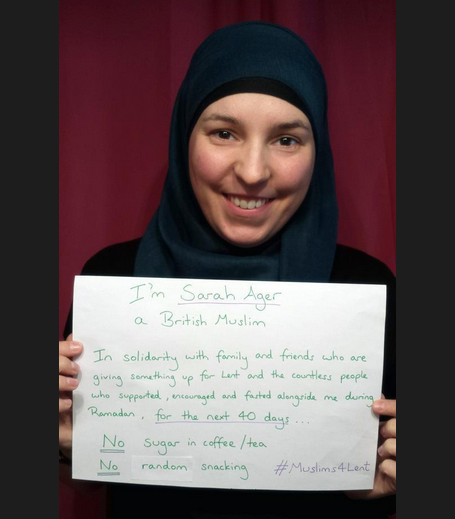 I'm Sarah Ager
a British Muslim
In solidarity with family and friends who are
giving something up for Lent and the countless people
who supported, encouraged and fasted alongside me during
Ramadan, for the next 40 days...
No sugar in coffee/tea
No random snacking #Muslims4Lent